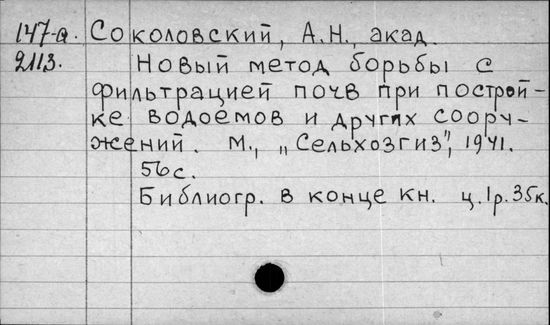 147-а. Соколовский, А.Н., акад.
2113. Новый метод борьбы с
фильтрацией почв при построй-
ке водоемов и других соору-
жений. М., „Сельхозгиз", 1941.
56с.
Библиогр. в конце кн. ц. 1р. 35к.